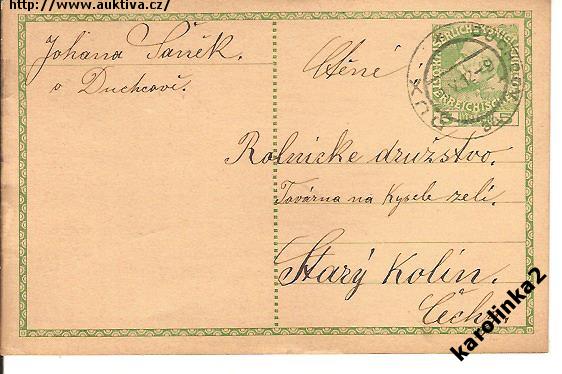 http://www.auktiva.cz/
Johana Saněk.
v Duchcově.
Ctěné
Rolnicke družstvo.
Továrna na kysele zelí.
Starý Kolín.
Čechy
DUX
karolinka2